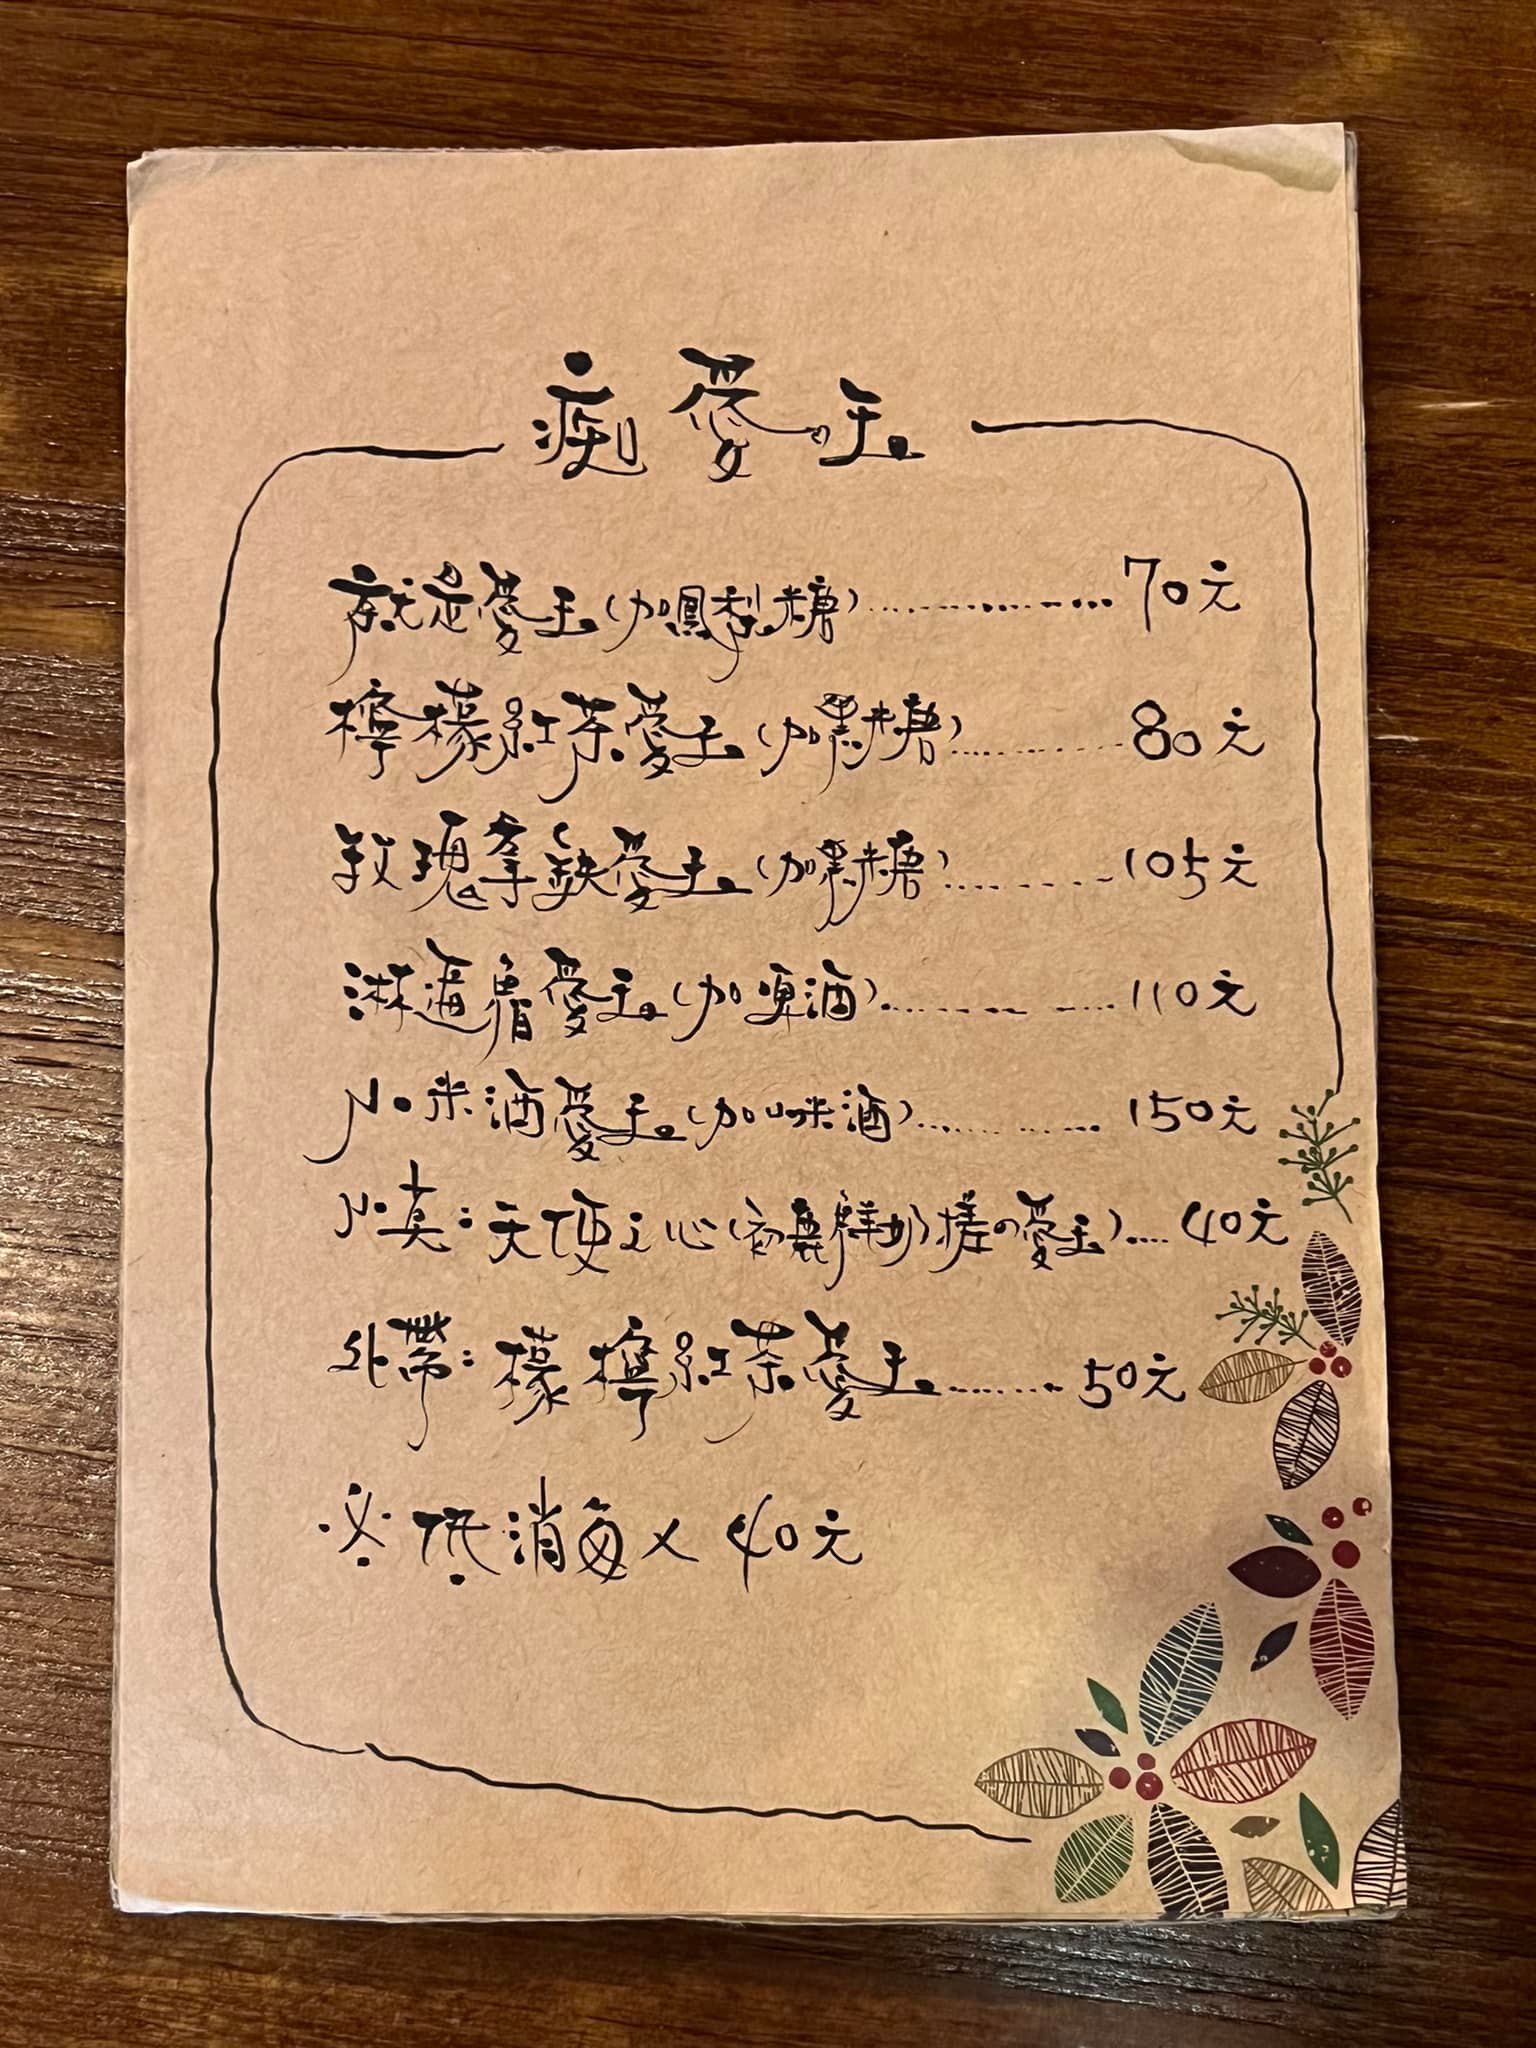 痴愛玉
就是愛玉(加鳳梨糖)..................70元
檸檬紅茶愛玉(加黑糖)..............80元
玫瑰拿鐵愛玉(加黑糖)............105元
淋逼魯愛玉(加啤酒)..................110元
小米酒愛玉(加小米酒)...............150元
小莫:天使之心(初鹿鮮奶搓の愛玉)....40元
外帶:檬檸紅茶愛玉..........50元
※低消每人40元